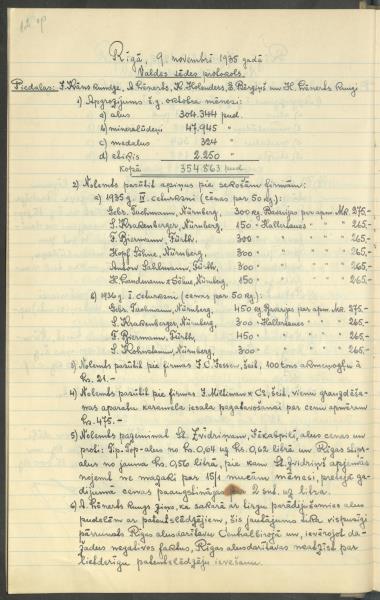 Rīgā, 9. novembrī 1935 gadā
Valdes sēdes protokols.
Piedalās: J. Kāns kundze, A. Lēnerts, K. Holenders, Z. Bērziņš un K. Lēnerts kungi
1) Apgrozījums š.g. oktobra mēnesī:
a) alus 304.344 pud.
b) minerālūdeņi 47.945 "
c) medalus 324 "
d) etiķis 2.250 "
Kopā 354.863 pud.
2) Nolemts pasūtīt apiņus pie sekošām firmām:
a) 1935 g. IV. ceturksnī (cenas par 50 kg.):
Gebr. Tuchmann, Nürnberg, 300 kg. par apm. Mk. 275.-
S. Krakenberger, Nürnberg, 150 " Hallertaues " " " 265.-
F. Biermann, Fürth, 300 " " " " 265.-
Hopf Söhne, Nürnberg, 300 " " " " 265.-
Anton Sahlmann, Fürth, 300 " " " " 265.-
& Söhne, Nürnberg, 150 " " " " 265.-
b) 1936 g. I. ceturksnī (cenas par 50 kg.):
Gebr. Tuchmann, Nürnberg, 450 kg. par apm. Mk. 275.-
S. Krakenberger, Nürnberg, 300 " Hallertaues " " " 265.-
F. Biermann, Fürth, 450 " " " " 265.-
S. Nürnberg, 300 " " " " 265.-
3) Nolemts pasūtīt pie firmas F.C. Jessen, šeit, 100 tons akmeņogļu à
Ls. 21.-
4) Nolemts pasūtīt pie firmas šeit, vienu grauzdēša-
nas aparātu karameļu iesala pagatavošanai par cenu apmēram
Ls. 475.-
5) Nolemts pazemināt St. Zvidriņam, Jēkabpilī, alus cenas un
proti: Tip-Top-alus no Ls. 0,64 uz Ls. 0,62 litrā un Rīgas stipr-
alus no jauna Ls. 0,56 litrā, pie kam St. Zvidriņš apņemas
noņemt ne mazāki par 15/1 mucām mēnesī, pretējā ga-
dījumā cenas paaugstinājas 2 snt. uz litra.
6) A. Lēnerts kungs ziņo, ka sakarā ar tirgū parādījušamies alus
pudelēm ar patentslēdzējiem, šis jautājums tika vispusīgi
pārrunāts Rīgas alusdarītavu Centrālbirojā un, ievērojot da-
žādus negatīvos faktus, Rīgas alusdarītavas neatzīst par
lietderīgu patentslēdzēju ievešanu.